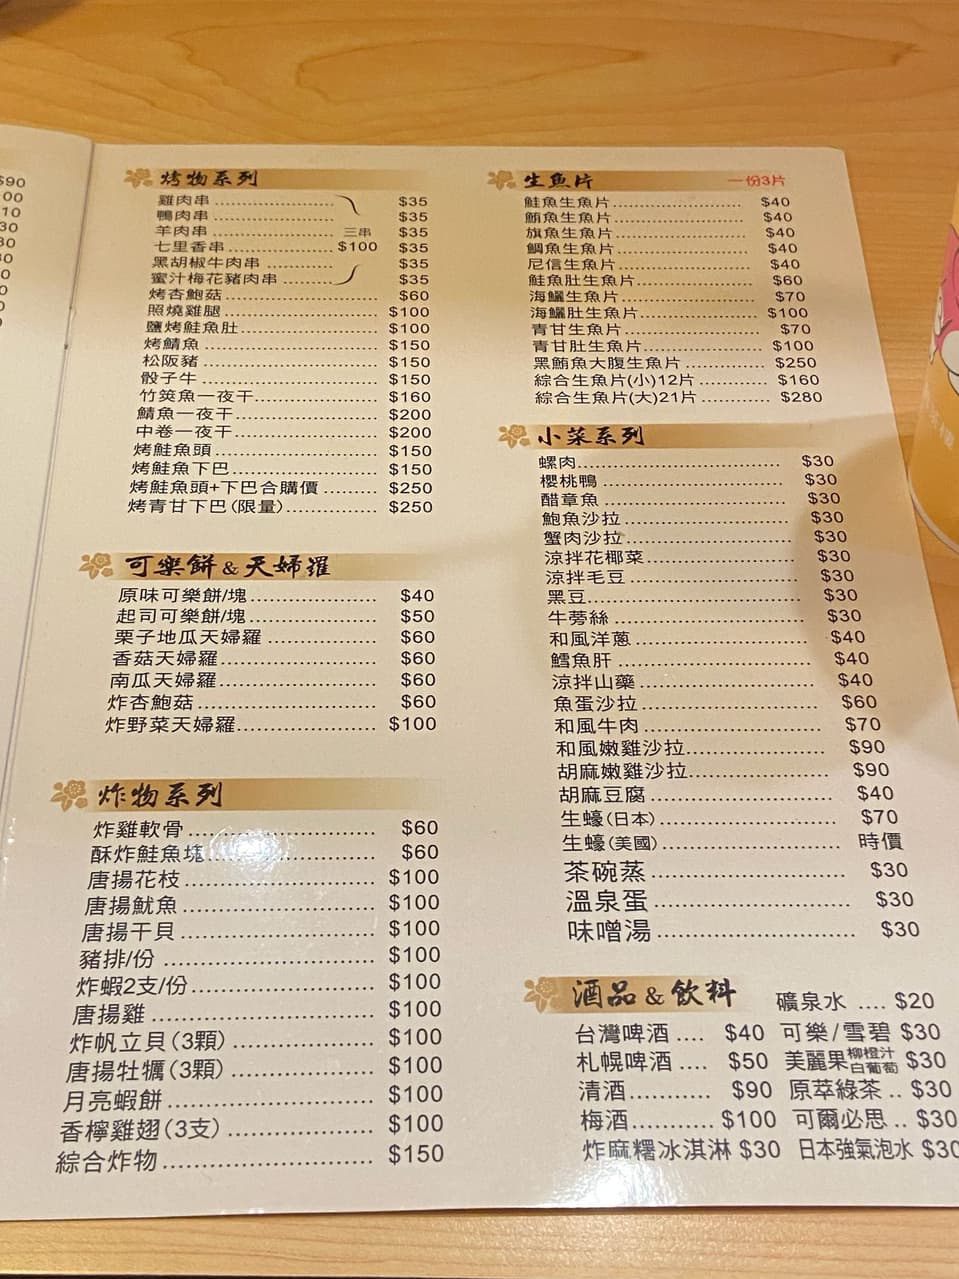 $90
00
10
30
30
30
0
0
0
烤物系列
雞肉串 $35
鴨肉串 $35
羊肉串 三串 $35
七里香串 $100 $35
黑胡椒牛肉串 $35
蜜汁梅花豬肉串 $35
烤杏鮑菇 $60
照燒雞腿 $100
鹽烤鮭魚肚 $100
烤鯖魚 $150
松阪豬 $150
骰子牛 $150
竹筴魚一夜干 $160
鯖魚一夜干 $200
中卷一夜干 $200
烤鮭魚頭 $150
烤鮭魚下巴 $150
烤鮭魚頭+下巴合購價 $250
烤青甘下巴(限量) $250
可樂餅&天婦羅
原味可樂餅/塊 $40
起司可樂餅/塊 $50
栗子地瓜天婦羅 $60
香菇天婦羅 $60
南瓜天婦羅 $60
炸杏鮑菇 $60
炸野菜天婦羅 $100
炸物系列
炸雞軟骨 $60
酥炸鮭魚塊 $60
唐揚花枝 $100
唐揚魷魚 $100
唐揚干貝 $100
豬排/份 $100
炸蝦2支/份 $100
唐揚雞 $100
炸帆立貝(3顆) $100
唐揚牡犡(3顆) $100
月亮蝦餅 $100
香檸雞翅(3支) $100
綜合炸物 $150
生魚片 一份3片
鮭魚生魚片 $40
鮪魚生魚片 $40
旗魚生魚片 $40
鯛魚生魚片 $40
尼信生魚片 $40
鮭魚肚生魚片 $60
海鱺生魚片 $70
海鱺肚生魚片 $100
青甘生魚片 $70
青甘肚生魚片 $100
黑鮪魚大腹生魚片 $250
綜合生魚片(小)12片 $160
綜合生魚片(大)21片 $280
小菜系列
螺肉 $30
櫻桃鴨 $30
醋章魚 $30
鮑魚沙拉 $30
蟹肉沙拉 $30
涼拌花椰菜 $30
涼拌毛豆 $30
黑豆 $30
牛蒡絲 $30
和風洋蔥 $40
鱈魚肝 $40
涼拌山藥 $40
魚蛋沙拉 $60
和風牛肉 $70
和風嫩雞沙拉 $90
胡麻嫩雞沙拉 $90
胡麻豆腐 $40
生蠔(日本) $70
生蠔(美國) 時價
茶碗蒸 $30
溫泉蛋 $30
味噌湯 $30
酒品&飲料 礦泉水 .... $20
台灣啤酒 .... $40 可樂/雪碧 $30
札幌啤酒 .... $50 美麗果柳橙汁白葡萄 $30
清酒 $90 原萃綠茶 .. $30
梅酒 $100 可爾必思 .. $30
炸麻糬冰淇淋 $30 日本強氣泡水 $30